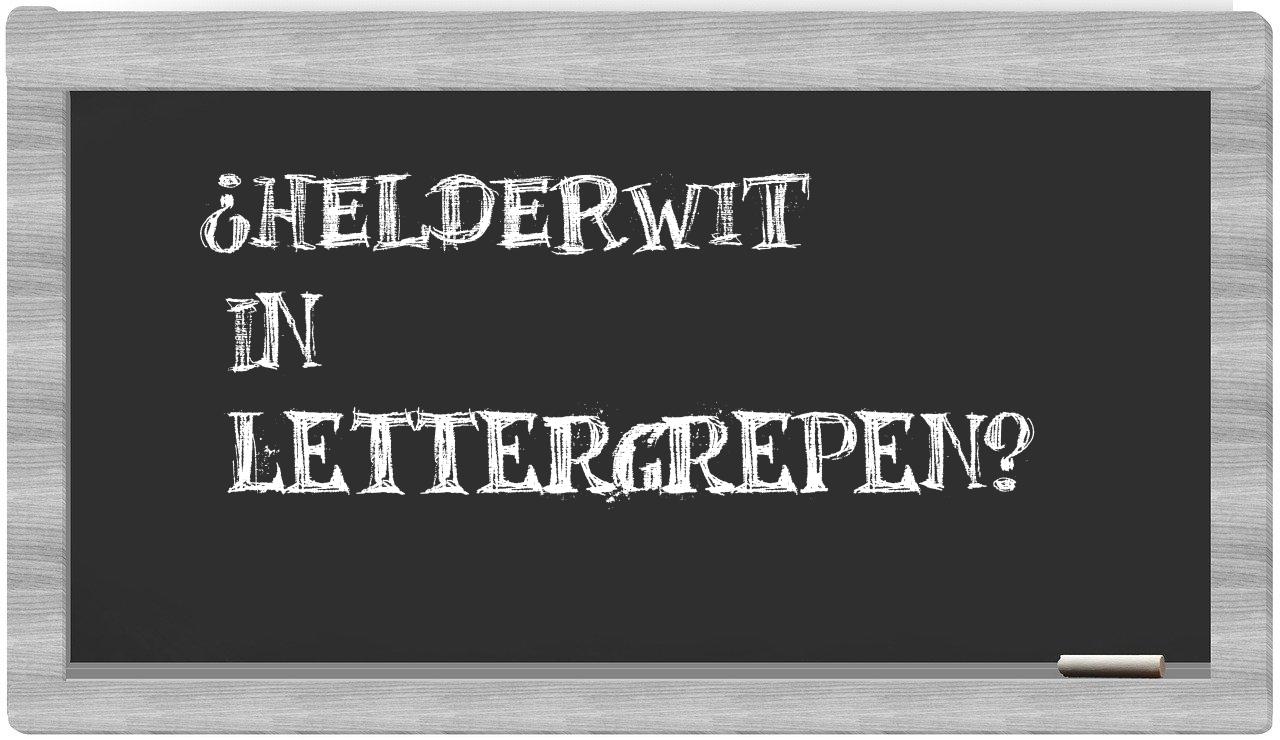 ¿HELDERWIT
IN
LETTERGREPEN?